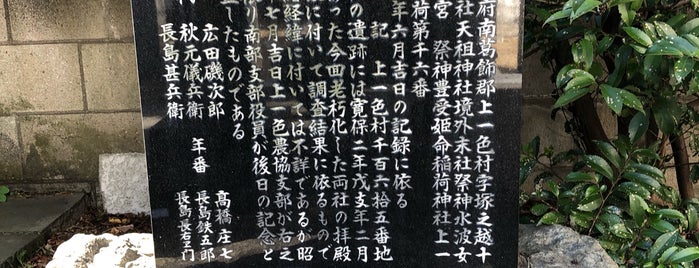 府南葛飾郡上一色村字塚之越十
社天祖神社境外末社祭神水波女
宮　祭神豊受姫命稲荷神社上一
荷第千六番
年六月吉日の記録に依る
記　上一色村千百六拾五番地
の遺跡には寛保二年戊支年二月
った今回老朽化した両社の拝殿
に付いて調査結果に依るもので
経緯に付いては不詳であるが昭
七月吉日上一色農協支部が右之
り南部支部役員が後日の記念と
したものである
広田磯次郎　年番　高橋庄七
秋元儀兵衛　長島鉄五郎
長島甚兵衛　長島長右エ門